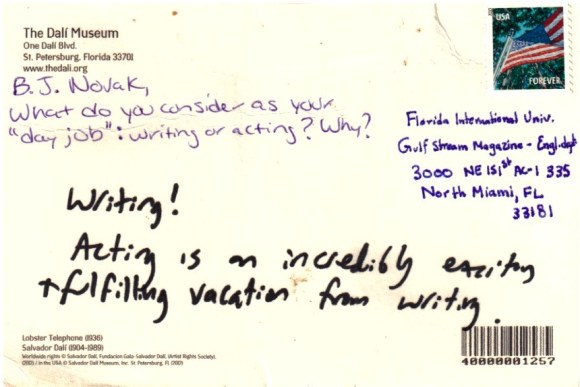 The Dalí Museum
One Dalí Blvd.
St. Petersburg, Florida 33701
www.thedali.org
B.J. Novak,
What do you consider as your
"day job": writing or acting? Why?
USA
FOREVER
Florida International Univ.
Gulf Stream Magazine - Engl. dept
3000 NE 151st AC-1 335
North Miami, FL
33181
Writing!
Acting is an incredibly exciting
+ fulfilling vacation from writing.
Lobster Telephone (1936)
Salvador Dalí (1904-1989)
Worldwide rights © Salvador Dalí, Fundacion Gala-Salvador Dalí, (Artist Rights Society),
in the USA © Salvador Dalí Museum, Inc. St. Petersburg, FL
40000001257